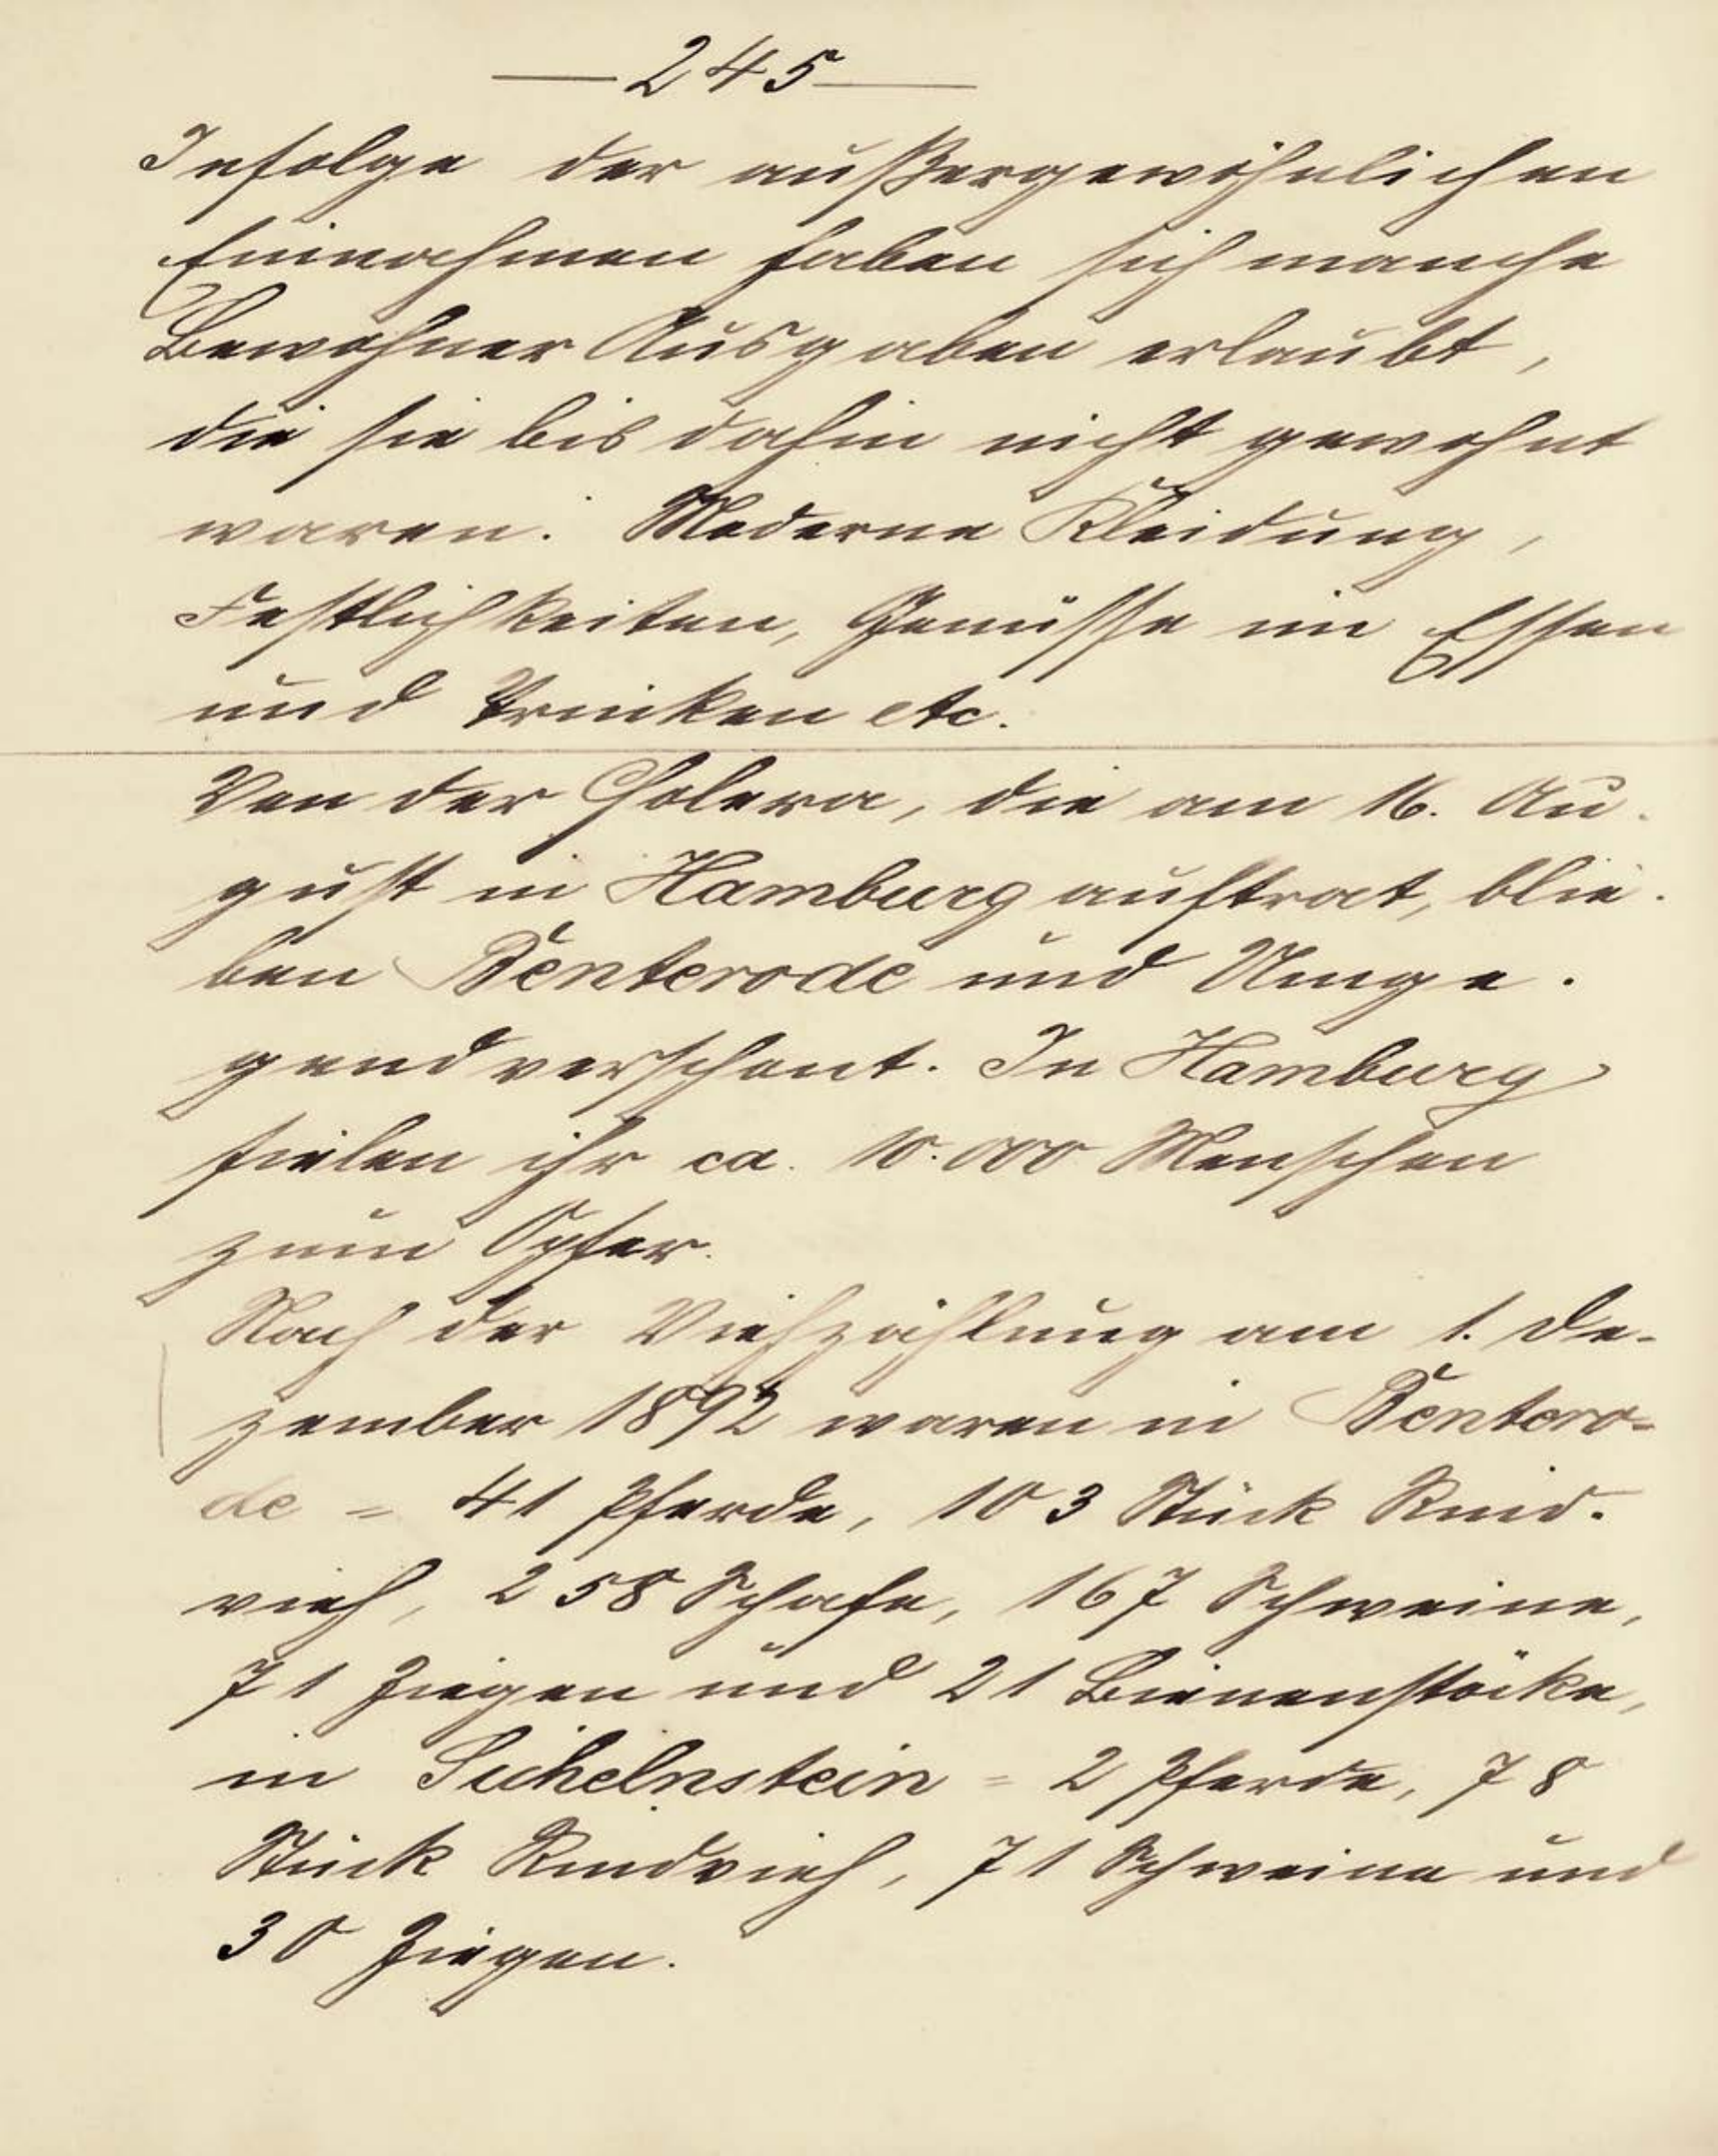 —245—
Infolge der außergewöhnlichen
Einnahmen haben sich manche
Bewohner Ausgaben erlaubt,
die sie bis dahin nicht gewohnt
waren. Moderne Kleidung,
Festlichkeiten, Genüsse im Essen
und Trinken etc.
Von der Cholera, die am 16. Au-
gust in Hamburg auftrat, blie-
ben Benterode und Umge-
gend verschont. In Hamburg
fielen ihr ca. 10.000 Menschen
zum Opfer.
Nach der Viehzählung am 1. De-
zember 1892 waren in Bentero-
de = 41 Pferde, 103 Stück Rind-
vieh, 258 Schafe, 167 Schweine,
71 Ziegen und 21 Bienenstöcke,
in Sichelnstein = 2 Pferde, 78
Stück Rindvieh, 71 Schweine und
30 Ziegen.